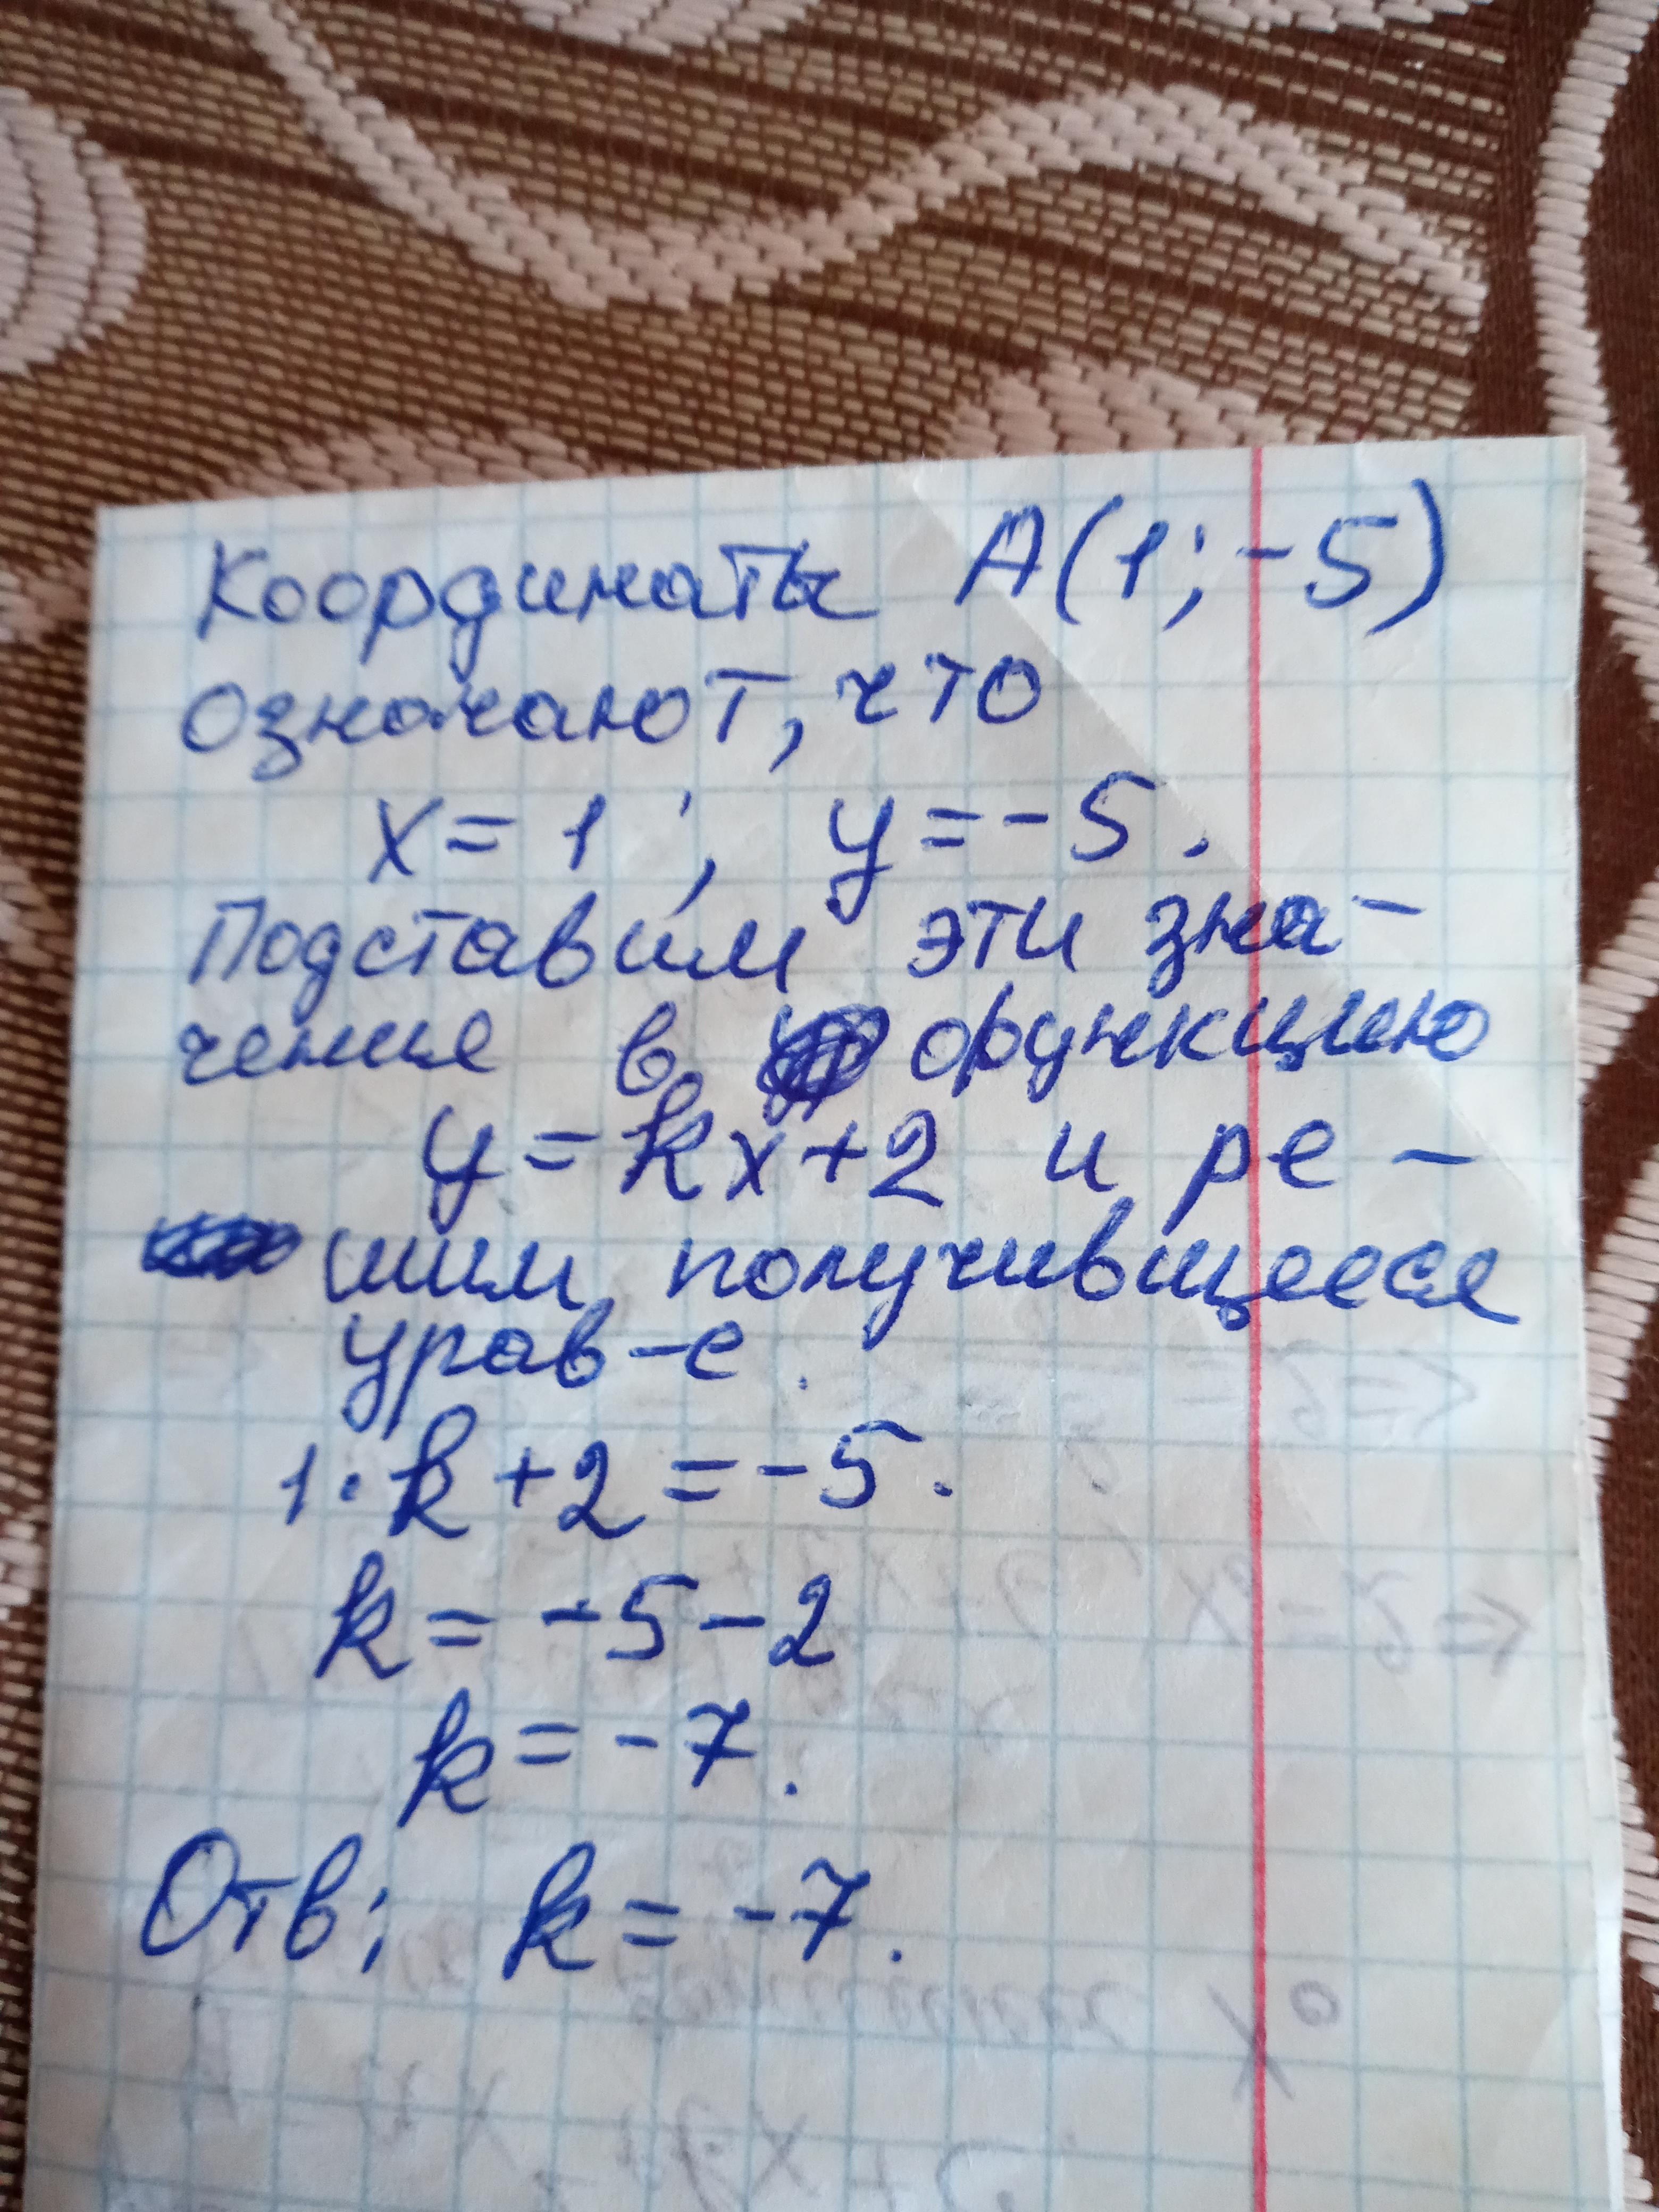 Координаты А(1; -5)
означают, что
x = 1 ; y = -5.
Подставим эти зна-
чения в функцию
y = kx + 2 и ре-
шим получившееся
урав-е.
1 · k + 2 = -5.
k = -5 - 2
k = -7.
Отв; k = -7.